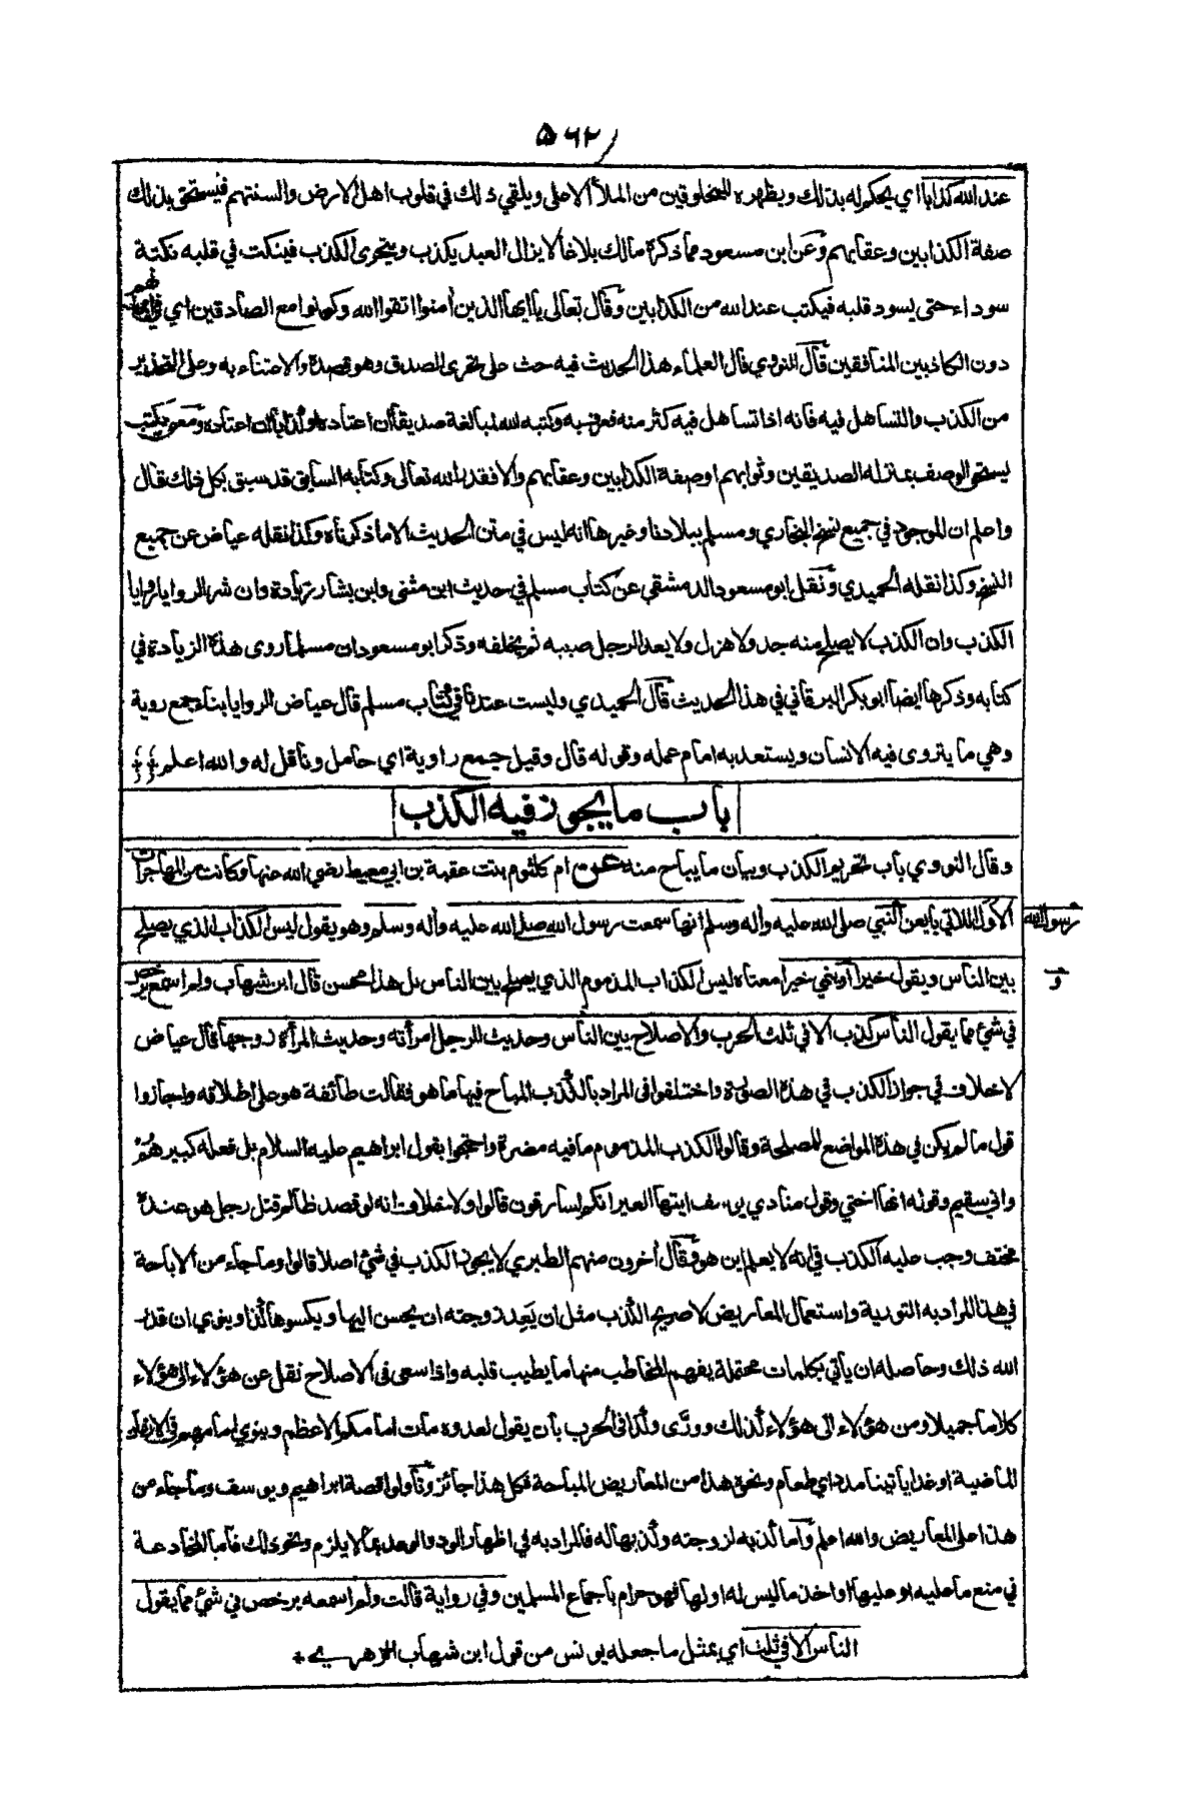 ٥٦٢
عند الله كذابا اي يحكم له بذلك ويظهره للمخلوقين من الملأ الاعلى ويلقي ذلك في قلوب اهل الارض والسنتهم فيستحق بذلك
صفة الكذابين وعقابهم وعن ابن مسعود مما ذكره مالك بلاغا لا يزال العبد يكذب ويتحرى الكذب فينكت في قلبه نكتة
سوداء حتى يسود قلبه فيكتب عند الله من الكذابين وقال تعالى يا ايها الذين أمنوا اتقوا الله وكونوا مع الصادقين اي في
دون الكاذبين المنافقين قال النووي قال العلماء هذا الحديث فيه حث على تحرى الصدق وهو قصده والاعتناء به وعلى التحذير
من الكذب والتساهل فيه فانه اذا تساهل فيه كثر منه فعرف به وكتبه الله لمبالغة صديقا ان اعتاده او كذابا ان اعتاده ومعنى يكتب
يستحق الوصف بمنزلة الصديقين وثوابهم او صفة الكذابين وعقابهم والا فقدر الله تعالى وكتابه السابق قد سبق بكل ذلك قال
واعلم ان الموجود في جميع نسخ البخاري ومسلم ببلادنا وغيرها انه ليس في متن الحديث الا ما ذكرناه وكذا نقله عياض عن جميع
النسخ وكذا نقله الحميدي ونقل ابو مسعود الدمشقي عن كتاب مسلم في حديث ابن مثنى وابن بشار زيادة وان شر الروايا روايا
الكذب وان الكذب لا يصلح منه جد ولا هزل ولا يعد الرجل صبيه ثم يخلفه وذكر ابو مسعود ان مسلما روى هذه الزيادة في
كتابه وذكرها ايضا ابو بكر البرقاني في هذا الحديث قال الحميدي وليست عندنا في كتاب مسلم قال عياض الروايا بناء جمع روية
وهي ما يتروى فيه الانسان ويستعد به امام عمله وقوله قال وقيل جمع راوية اي حامل وناقل له والله اعلم
باب ما يجوز فيه الكذب
وقال النووي باب تحريم الكذب وبيان ما يباح منه عن ام كلثوم بنت عقبة بن ابي معيط رضي الله عنها وكانت من المهاجرات
الأول اللاتي بايعن النبي صلى الله عليه وأله وسلم انها سمعت رسول الله صلى الله عليه وأله وسلم وهو يقول ليس الكذاب الذي يصلح
رسول الله
بين الناس ويقول خيرا او ينمي خيرا معناه ليس الكذاب المذموم الذي يصلح بين الناس بل هذا محسن قال ابن شهاب ولم اسمع يرخص
و
في شئ مما يقول الناس كذب الا في ثلث الحرب والاصلاح بين الناس وحديث الرجل امرأته وحديث المرأة زوجها قال عياض
لا خلاف في جواز الكذب في هذه الصورة واختلفوا في المراد بالكذب المباح فيها ما هو فقالت طائفة هو على اطلاقه واجازوا
قول ما لم يكن في هذه المواضع للمصلحة وقالوا الكذب المذموم ما فيه مضرة واحتجوا بقول ابراهيم عليه السلام بل فعله كبيرهم
واني سقيم وقوله انها اختي وقول منادي يوسف ايتها العير انكم لسارقون قالوا ولا خلاف انه لو قصد ظالم قتل رجل هو عنده
مختف وجب عليه الكذب في انه لا يعلم اين هو وقال أخرون منهم الطبري لا يجوز الكذب في شئ اصلا قالوا وما جاء من الاباحة
في هذا المراد به التورية واستعمال المعاريض لا صريح الكذب مثل ان يعد زوجته ان يحسن اليها ويكسوها كذا وينوي ان قدر
الله ذلك وحاصله ان يأتي بكلمات محتملة يفهم المخاطب منها ما يطيب قلبه واذا سعى في الاصلاح نقل عن هؤلاء الى هؤلاء
كلاما جميلا ومن هؤلاء الى هؤلاء كذلك وورى وكذا في الحرب بأن يقول لعدوه مات امامكم الاعظم وينوي امامهم في الازمان
الماضية او غدا يأتينا مدد اي طعام ونحوه هذا من المعاريض المباحة فكل هذا جائز وتأولوا قصة ابراهيم ويوسف وما جاء من
هذا على المعاريض والله اعلم واما كذبه لزوجته وكذبها له فالمراد به في اظهار الود والوعد بما لا يلزم ونحو ذلك فاما المخادعة
في منع ما عليه او عليها او اخذ ما ليس له او لها فهو حرام باجماع المسلمين وفي رواية قالت ولم اسمعه يرخص في شئ مما يقول
الناس الا في ثلث اي بمثل ما جعله يونس من قول ابن شهاب الزهري *